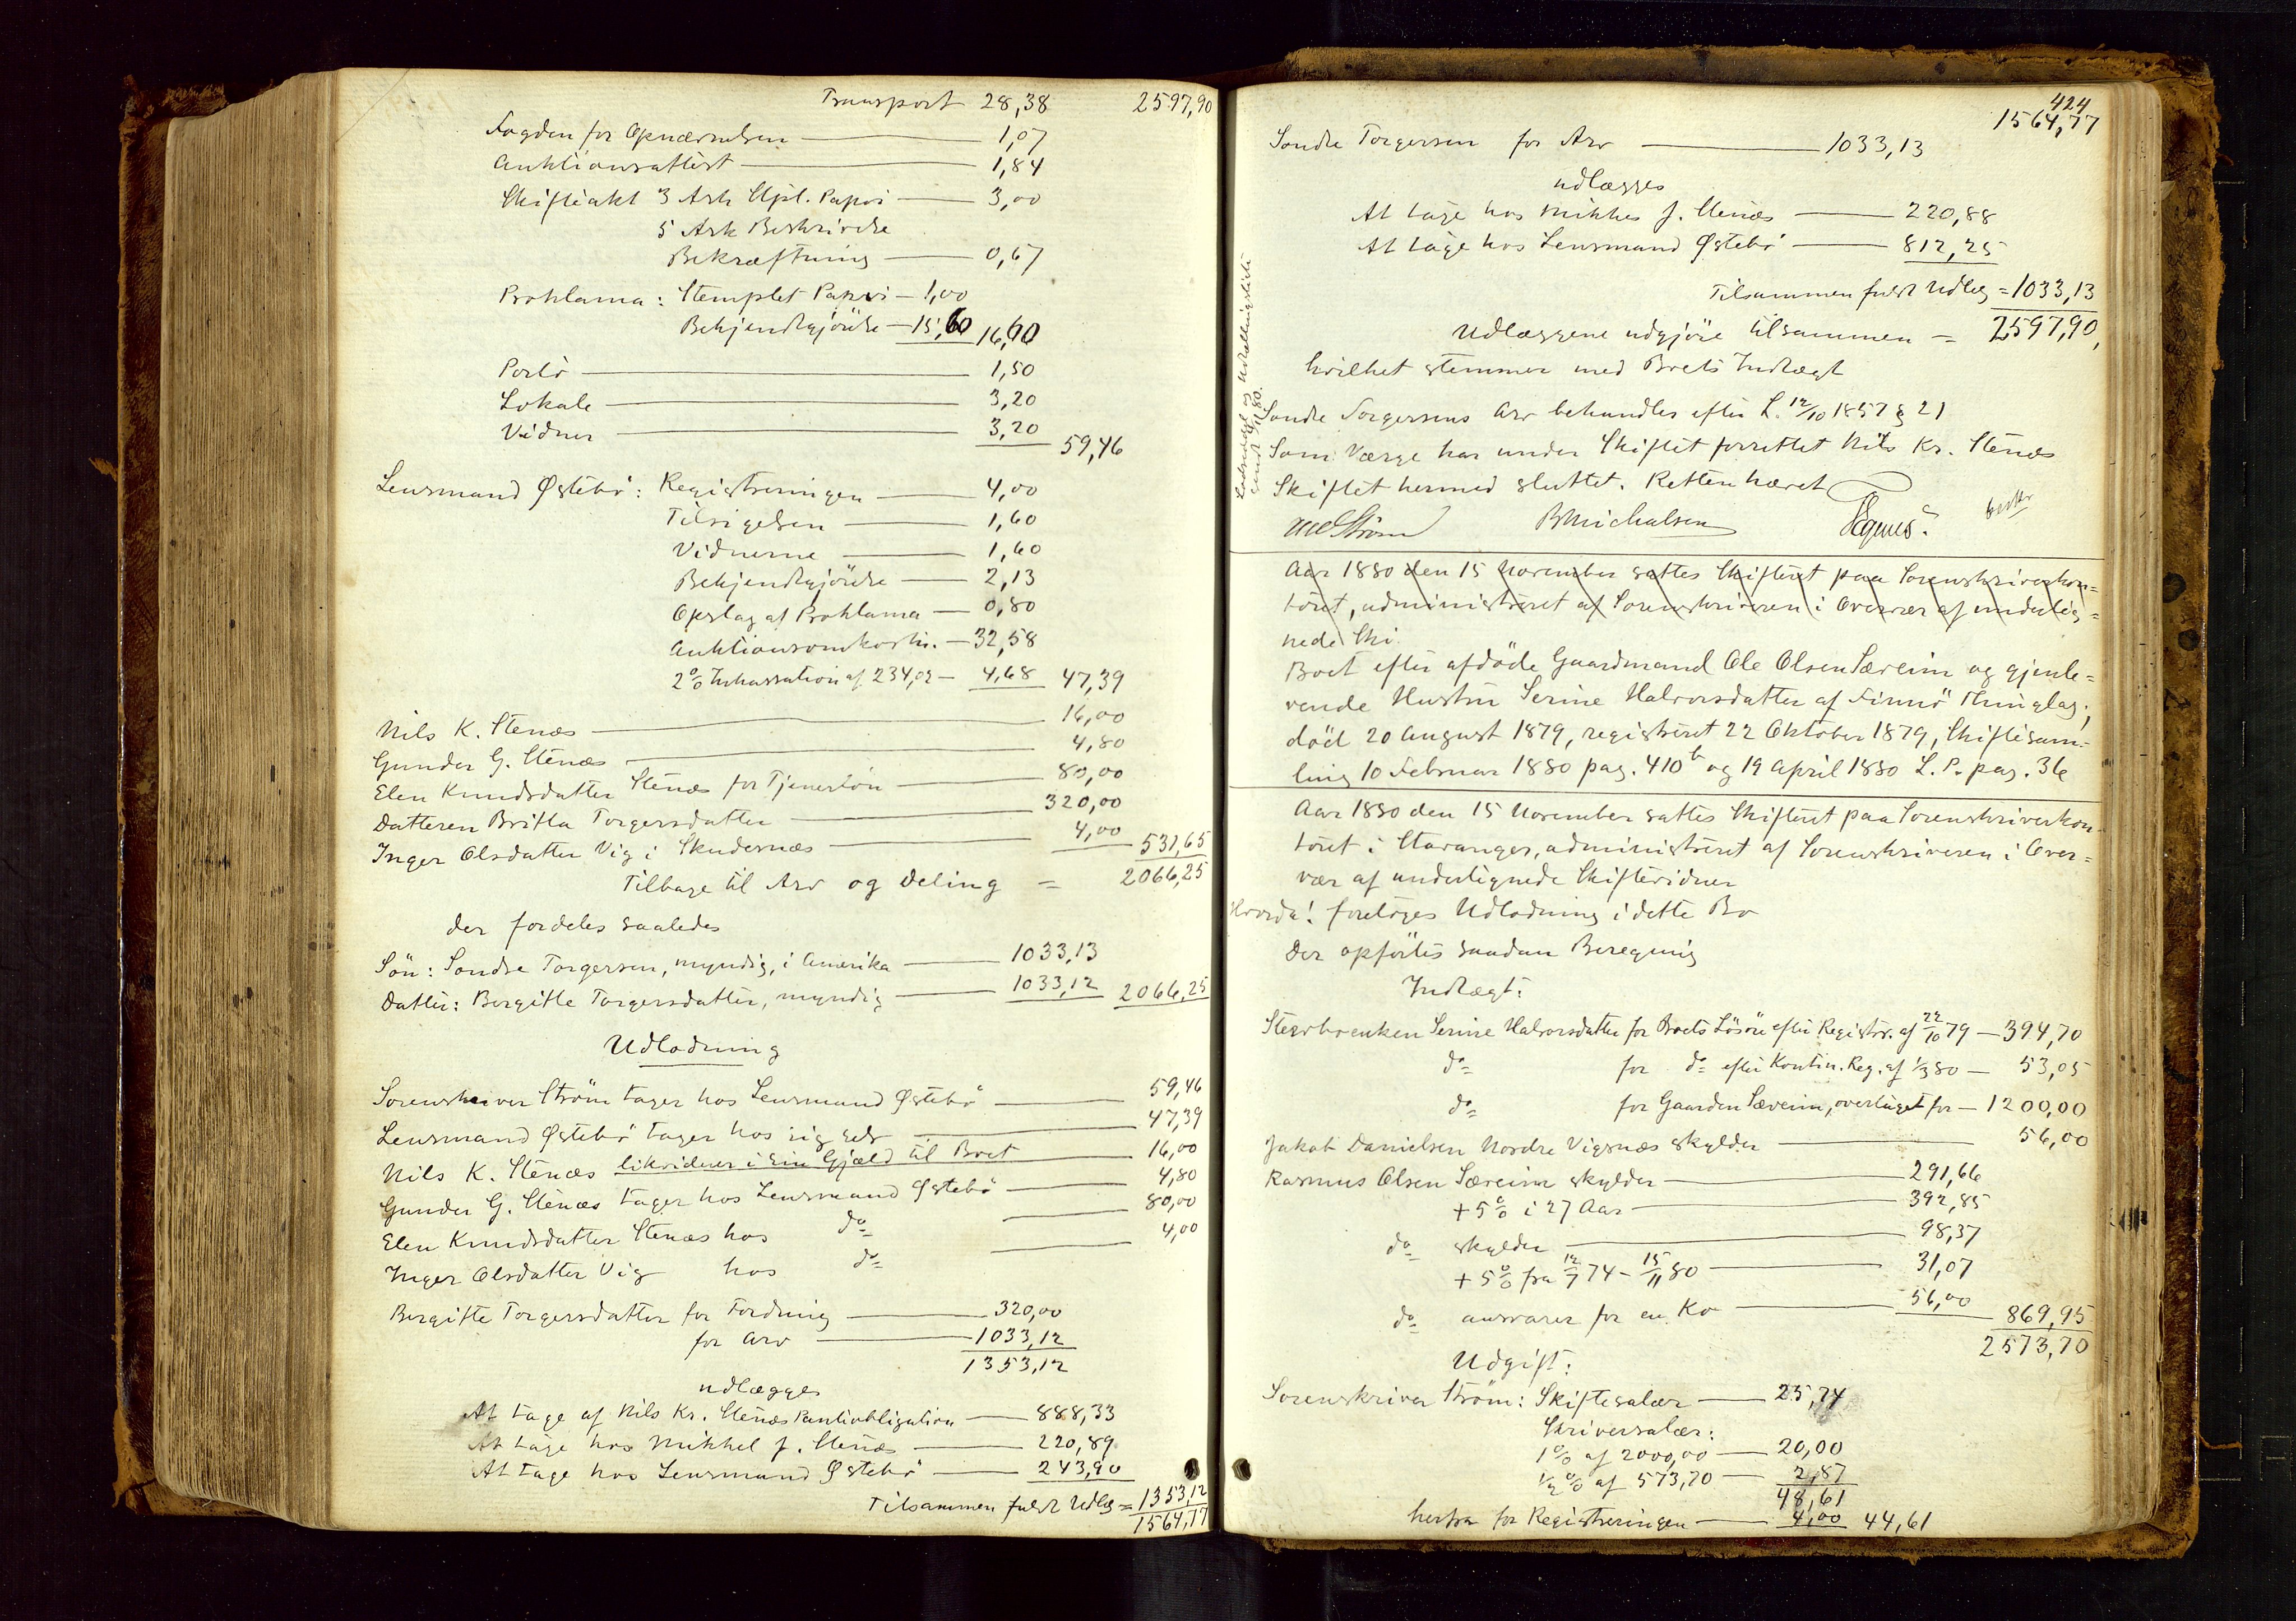 Transport 28,38 2597,90
Fogden for Opnævnelsen 1,07
Auktionsattest 1,84
Skifteakt 3 Ark Stpl. Papir 3,00
5 Ark Beskrivelse
Bekræftning 0,67
Proklama: Stemplet Papir 1,00
Bekjendtgjörelse 15,60 16,60
Porto 1,50
Lokale 3,20
Vidner 3,20 59,46
Lensmand Østebö: Registreringen 4,00
Tilsigelsen 1,60
Vidnerne 1,60
Bekjendtgjörelse 2,13
Opslag af Proklama 0,80
Auktionsomkostn. 32,58
2% Inkassation af 234,02 4,68 47,39
Nils K. Stenæs 16,00
Gunder G. Stenæs 4,80
Elen Knudsdatter Stenæs for Tjenerlön 80,00
Datteren Britta Torgersdatter 320,00
Inger Olsdatter Vig i Skudesnæs 4,00 531,65
Tilbage til Arv og Deling = 2066,25
der fordeles saaledes
Sön: Sondre Torgersen, myndig, i Amerika 1033,13
Datter: Bergitte Torgersdatter, myndig 1033,12 2066,25
Udlodning
Sorenskriver Ström tager hos Lensmand Østebö 59,46
Lensmand Østebö tager hos sig selv 47,39
Nils K. Stenæs likviderer i sin Gjæld til Boet 16,00
Gunder G. Stenæs tager hos Lensmand Østebö 4,80
Elen Knudsdatter Stenæs hos do 80,00
Inger Olsdatter Vig hos do 4,00
Bergitte Torgersdatter for Fordring 320,00
for Arv 1033,12
1353,12
udlægges
At tage af Nils Kr. Stenæs Pantobligation 888,33
At tage hos Mikkel J. Stenæs 220,89
At tage hos Lensmand Østebö 243,90
Tilsammen fuldt Udlæg = 1353,12
1564,77
424
1564,77
Sondre Torgersen for Arv 1033,13
udlægges
At tage hos Mikkel J. Stenæs 220,88
At tage hos Lensmand Østebö 812,25
Tilsammen fuldt Udlæg = 1033,13
Udlæggene udgjöre tilsammen = 2597,90,
hvilket stemmer med Boets Indtægt
Sondre Torgersens Arv behandles efter L. 12/10 1857 § 21
Som Værge har under Skiftet forrettet Nils Kr. Stenæs
Skiftet hermed sluttet. Retten hævet
Ström B Michalsen
Aar 1880 den 15 November sattes Skifteret paa Sorenskriverkon=
toret, administreret af Sorenskriveren i Overvær af underteg=
nede Ski
Boet efter afdöde Gaardmand Ole Olsen Særeim og gjenle=
vende Hustru Serine Halvorsdatter af Finnö Thinglag;
död 20 August 1879, registreret 22 Oktober 1879, Skiftesam=
ling 10 Februar 1880 pag. 410b og 19 April 1880 L. P. pag. 36
Aar 1880 den 15 November sattes Skifteret paa Sorenskriverkon-
toret i Stavanger, administreret af Sorenskriveren i Over=
vær af undertegnede Skiftevidner
Hvorda! foretoges Udlodning i dette Bo
Der opförtes saadan Beregning
Indtægt:
Stervboenken Serine Halvorsdatter for Boets Lösöre efter Registr. af 22/10 79 394,70
do for do efter Kontin. Reg. af 1/3 80 53,05
do for Gaarden Særeim, overtaget for 1200,00
Jakob Danielsen Nordre Vignæs skylder 56,00
Rasmus Olsen Særeim skylder 291,66
+ 5% i 27 Aar 392,85
do skylder 98,37
+ 5% fra 12/7 74 - 15/11 80 31,07
do ansvarer for en Ko 56,00 869,95
2573,70
Udgift:
Sorenskriver Ström: Skiftesalær 25,74
Skriversalær:
1% af 2000,00 20,00
½% af 573,70 2,87
48,61
herfra for Registreringen 4,00 44,61